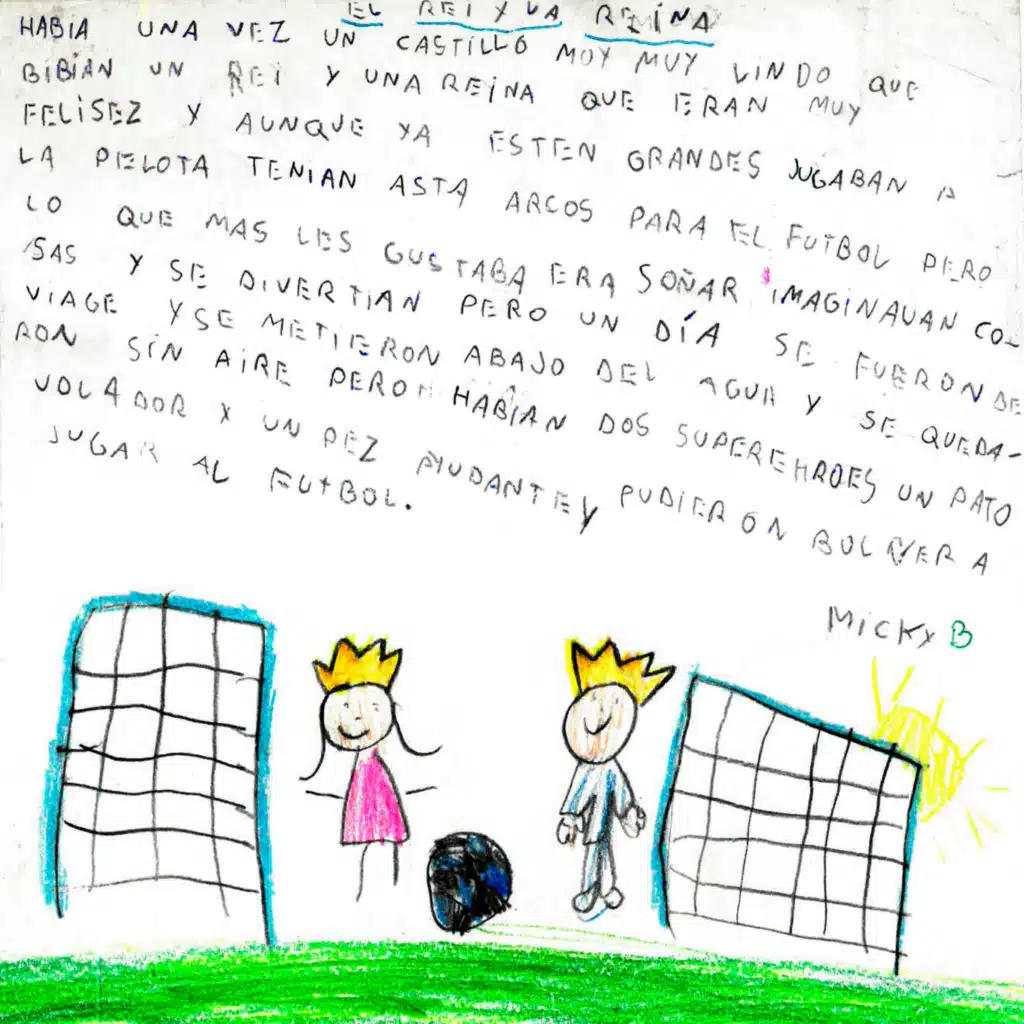 EL REI Y LA REINA
HABIA UNA VEZ UN CASTILLO MUY MUY LINDO QUE
BIBIAN UN REI Y UNA REINA QUE ERAN MUY
FELISEZ Y AUNQUE YA ESTEN GRANDES JUGABAN A
LA PELOTA TENIAN ASTA ARCOS PARA EL FUTBOL PERO
LO QUE MAS LES GUSTABA ERA SOÑAR IMAGINAVAN CO-
SAS Y SE DIVERTIAN PERO UN DÍA SE FUERON DE
VIAGE Y SE METIERON ABAJO DEL AGUA Y SE QUEDA-
RON SIN AIRE PERO HABIAN DOS SUPEREHROES UN PATO
VOLADOR Y UN PEZ AYUDANTE Y PUDIERON BOLVER A
JUGAR AL FUTBOL.
MICKY B